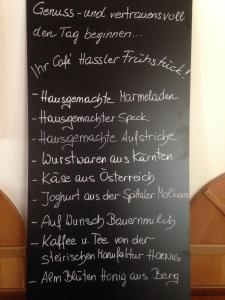 Genuss - und vertrauensvoll
den Tag beginnen...
Ihr Café Hassler Frühstück!
- Hausgemachte Marmeladen
- Hausgemachter Speck
- Hausgemachte Aufstriche
- Wurstwaren aus Kärnten
- Käse aus Österreich
- Joghurt aus der Spittaler Molkerei
- Auf Wunsch Bauernmilch
- Kaffee u. Tee von der
steirischen Manufaktur HORNIG
- Alm Blüten Honig aus Berg